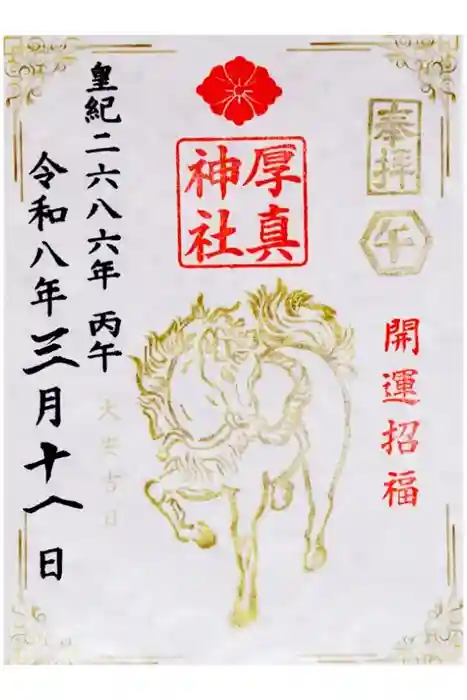 奉拝
午
開運招福
厚真
神社
皇紀二六八六年 丙午
令和八年三月十一日
大安吉日